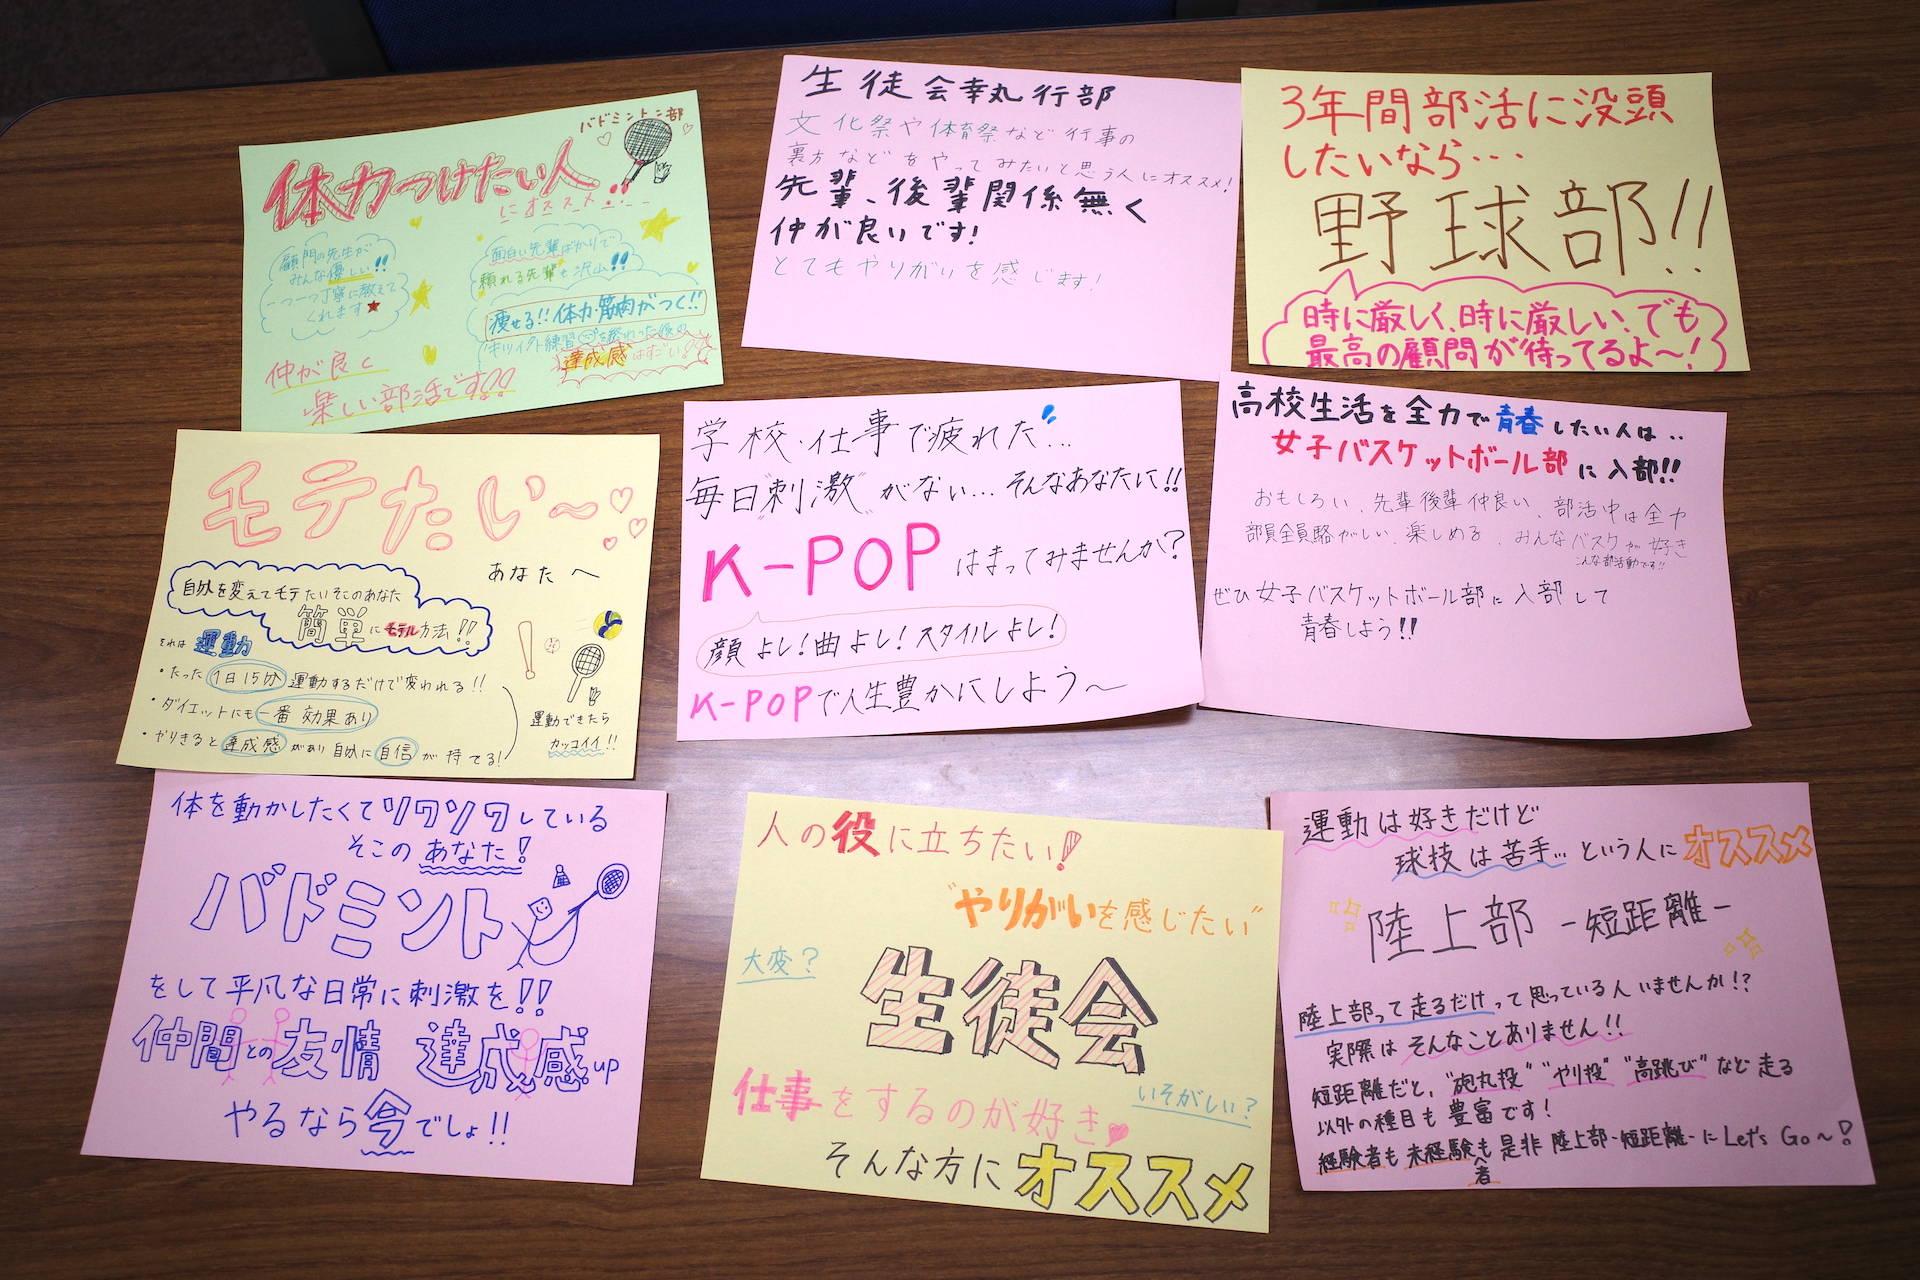 バドミントン部
体力つけたい人
にオススメ!!
顧門の先生が
みんな優しい!!
一つ一つ丁寧に教えて
くれます★
面白い先輩ばかりで
頼れる先輩も沢山!!
痩せる!!体力・筋肉がつく!!
達成感はすごい
仲が良く
楽しい部活です!!
生徒会執行部
文化祭や体育祭など行事の
裏方などをやってみたいと思う人にオススメ!
先輩、後輩関係無く
仲が良いです!
とてもやりがいを感じます!
3年間部活に没頭
したいなら…
野球部!!
時に厳しく、時に厳しい、でも
最高の顧問が待ってるよ〜!
モテたい〜♡♡
あなたへ
自分を変えてモテたいそこのあなた
簡単にモテル方法!!
それは運動
・たった1日15分運動するだけで変われる!!
・ダイエットにも一番効果あり
・やりきると達成感があり自分に自信が持てる!
運動できたら
カッコイイ!!
学校・仕事で疲れた…
毎日"刺激"がない…そんなあなたに!!
K-POPはまってみませんか?
顔よし!曲よし!スタイルよし!
K-POPで人生豊かにしよう〜
高校生活を全力で青春したい人は..
女子バスケットボール部に入部!!
おもしろい、先輩後輩仲良い、部活中は全力
部員全員騒がしい、楽しめる、みんなバスケが好き
こんな部活動です!!
ぜひ女子バスケットボール部に入部して
青春しよう!!
体を動かしたくてソワソワしている
そこのあなた!
バドミントン
をして平凡な日常に刺激を!!
仲間との友情 達成感up
やるなら今でしょ!!
人の役に立ちたい!
"やりがいを感じたい"
大変?
生徒会
仕事をするのが好き♥
いそがしい?
そんな方にオススメ
運動は好きだけど
球技は苦手…という人にオススメ
陸上部 -短距離-
陸上部って走るだけって思っている人いませんか!?
実際はそんなことありません!!
短距離だと、"砲丸投""やり投""高跳び"など走る
以外の種目も豊富です!
経験者も未経験者も是非陸上部-短距離-にLet's Go〜!